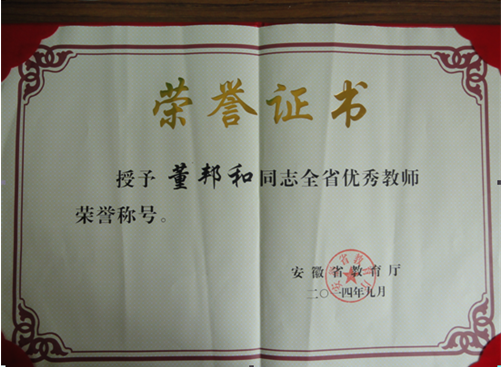 荣誉证书
授予 董邦和同志全省优秀教师
荣誉称号。
安徽省教育厅
二〇一四年九月